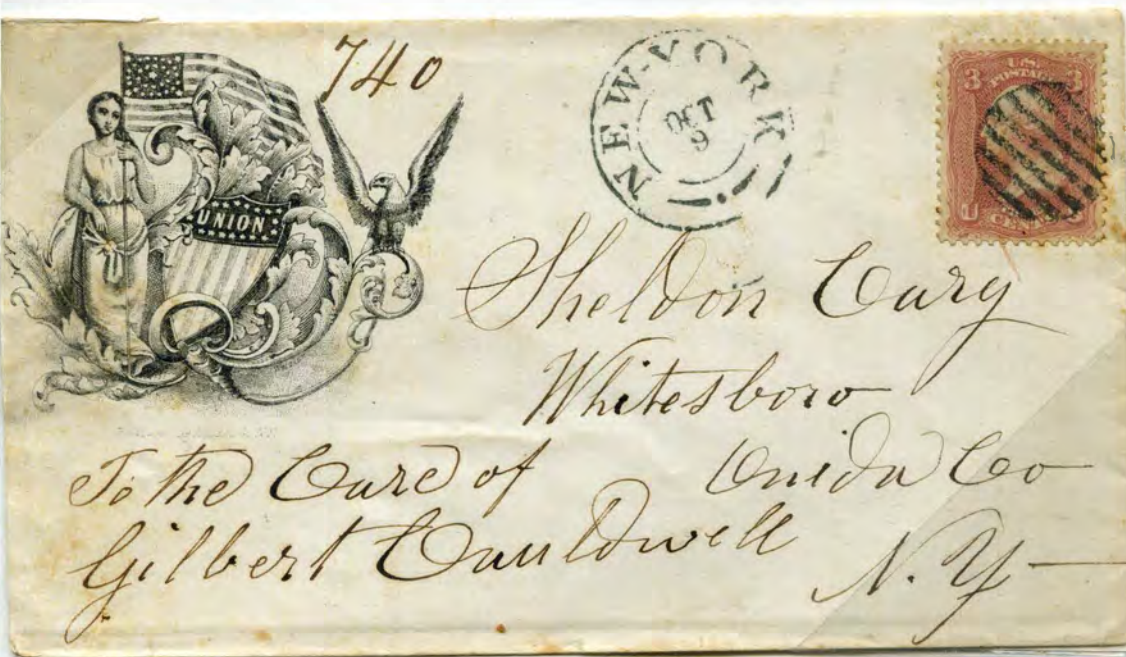 740
UNION
NEW-YORK
OCT
9
3 U.S. 3
POSTAGE
U
CENTS
Sheldon Cary
Whitesboro
Oneida Co
N.Y
To the Care of
Gilbert Cauldwell